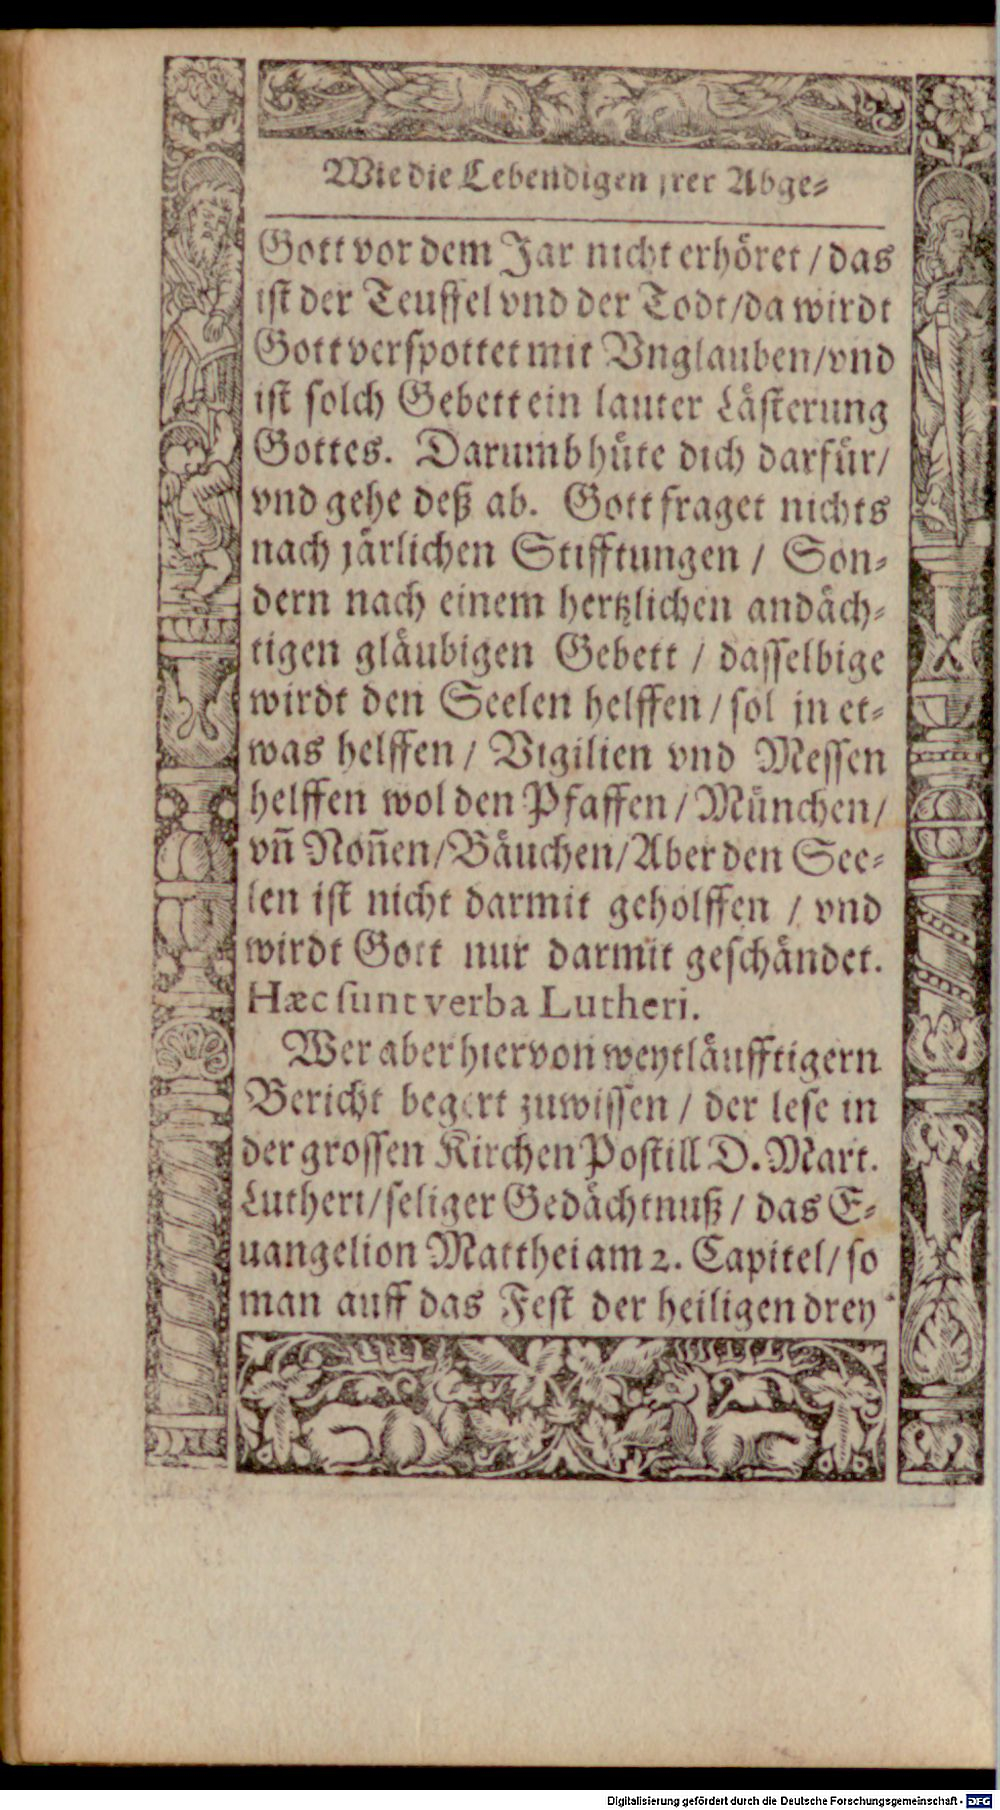 Wie die Lebendigen jrer Abge⸗
Gott vor dem Jar nicht erhöret / das
ist der Teuffel vnd der Todt / da wirdt
Gott verspottet mit Vnglauben / vnd
ist solch Gebett ein lauter Lästerung
Gottes. Darumb hüte dich darfür /
vnd gehe deß ab. Gott fraget nichts
nach järlichen Stifftungen / Son⸗
dern nach einem hertzlichen andäch⸗
tigen gläubigen Gebett / dasselbige
wirdt den Seelen helffen / sol jn et⸗
was helffen / Vigilien vnd Messen
helffen wol den Pfaffen / München /
vñ Noñen / Bäuchen / Aber den See⸗
len ist nicht darmit geholffen / vnd
wirdt Gott nur darmit geschändet.
Hæc sunt verba Lutheri.
Wer aber hiervon weytläufftigern
Bericht begert zuwissen / der lese in
der grossen Kirchen Postill D. Mart.
Lutheri / seliger Gedächtnuß / das E⸗
uangelion Matthei am 2. Capitel / so
man auff das Fest der heiligen drey
Digitalisierung gefördert durch die Deutsche Forschungsgemeinschaft - DFG